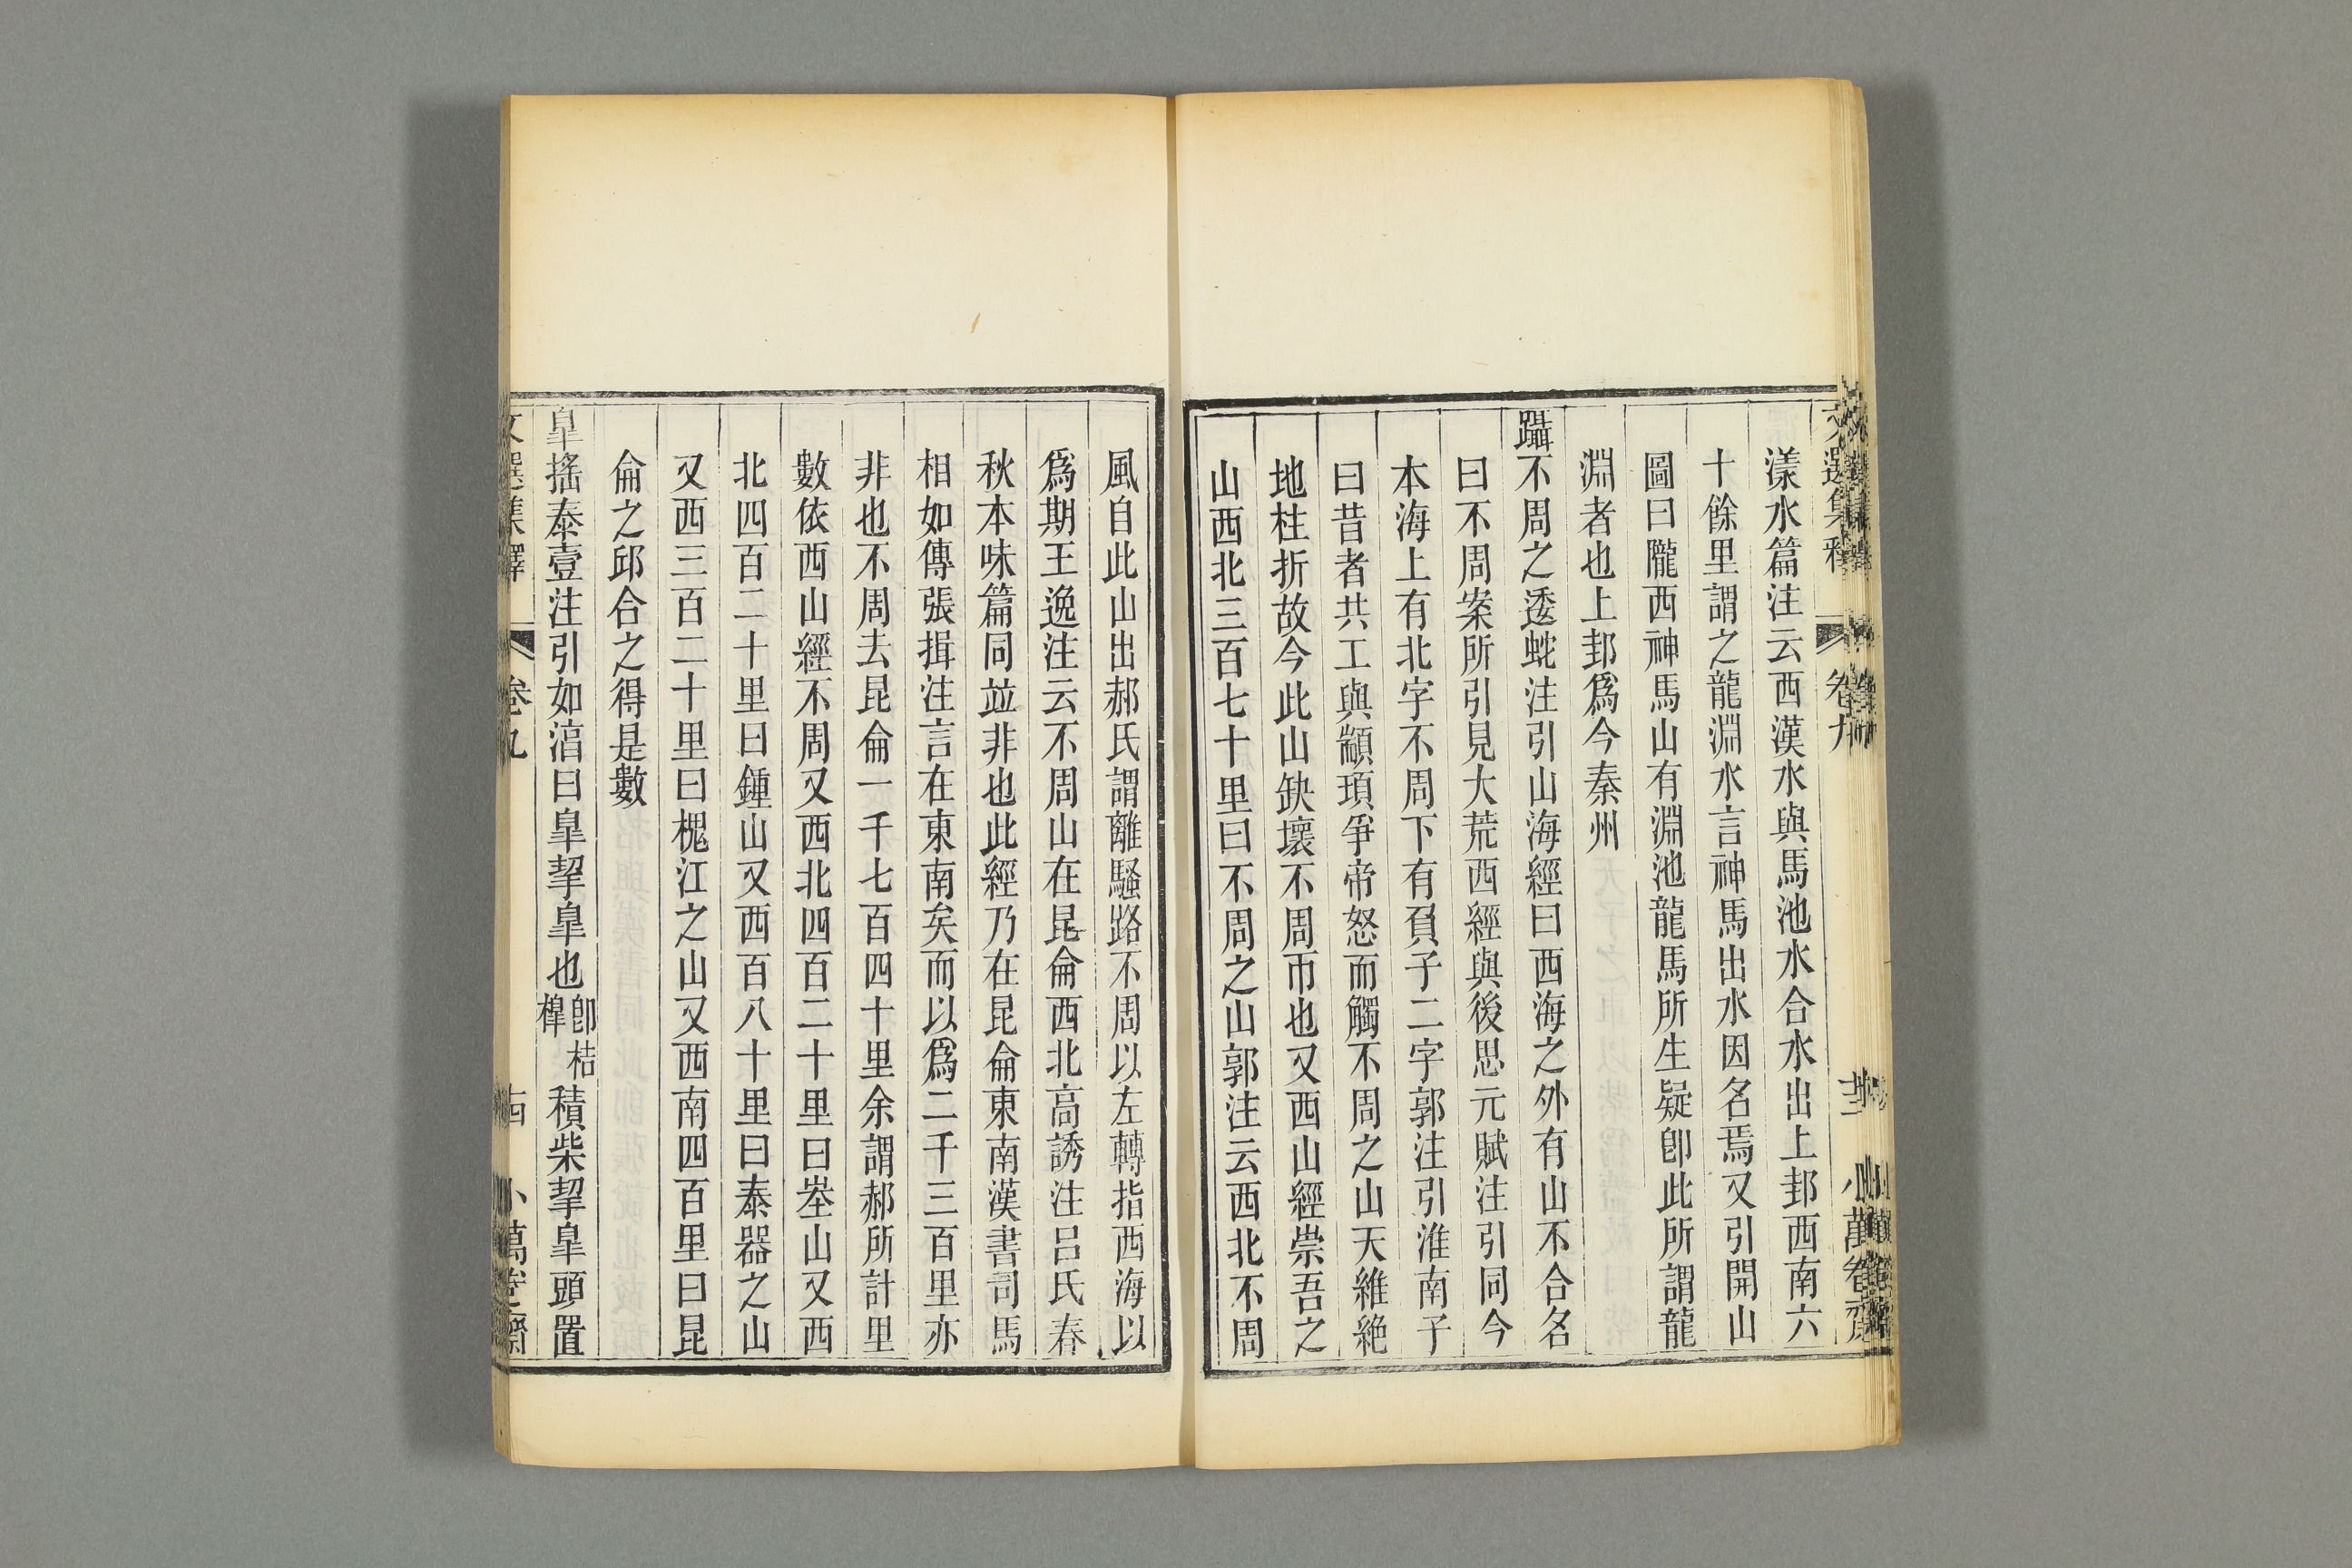 文選集釋 卷九 小萬卷齋
漾水篇注云西漢水與馬池水合水出上邽西南六
十餘里謂之龍淵水言神馬出水因名焉又引開山
圖曰隴西神馬山有淵池龍馬所生疑卽此所謂龍
淵者也上邽爲今秦州
躡不周之逶蛇注引山海經曰西海之外有山不合名
曰不周案所引見大荒西經與後思元賦注引同今
本海上有北字不周下有負子二字郭注引淮南子
曰昔者共工與顓頊爭帝怒而觸不周之山天維絶
地柱折故今此山缺壞不周帀也又西山經崇吾之
山西北三百七十里曰不周之山郭注云西北不周
風自此山出郝氏謂離騷路不周以左轉指西海以
爲期王逸注云不周山在昆侖西北高誘注呂氏春
秋本味篇同竝非也此經乃在昆侖東南漢書司馬
相如傳張揖注言在東南矣而以爲二千三百里亦
非也不周去昆侖一千七百四十里余謂郝所計里
數依西山經不周又西北四百二十里曰峚山又西
北四百二十里曰鍾山又西百八十里曰泰器之山
又西三百二十里曰槐江之山又西南四百里曰昆
侖之邱合之得是數
皐搖泰壹注引如湻曰皐挈皐也卽桔槹積柴挈皐頭置
文選集釋 卷九 古 小萬卷齋